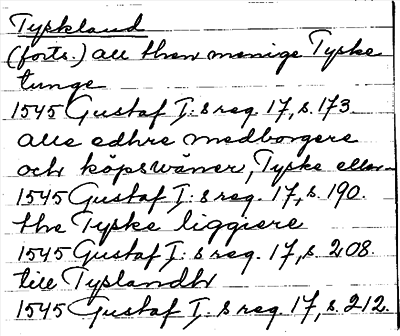 Tyskland
(forts.) all then menige Tyske
tunge
1545 Gustaf I:s reg. 17, s. 173.
alle edhre medborgere
och köpswäner, Tyske eller
1545 Gustaf I:s reg. 17, s. 190.
the Tyske liggiere
1545 Gustaf I:s reg. 17, s. 208.
till Tyslandh
1545 Gustaf I:s reg. 17, s. 212.